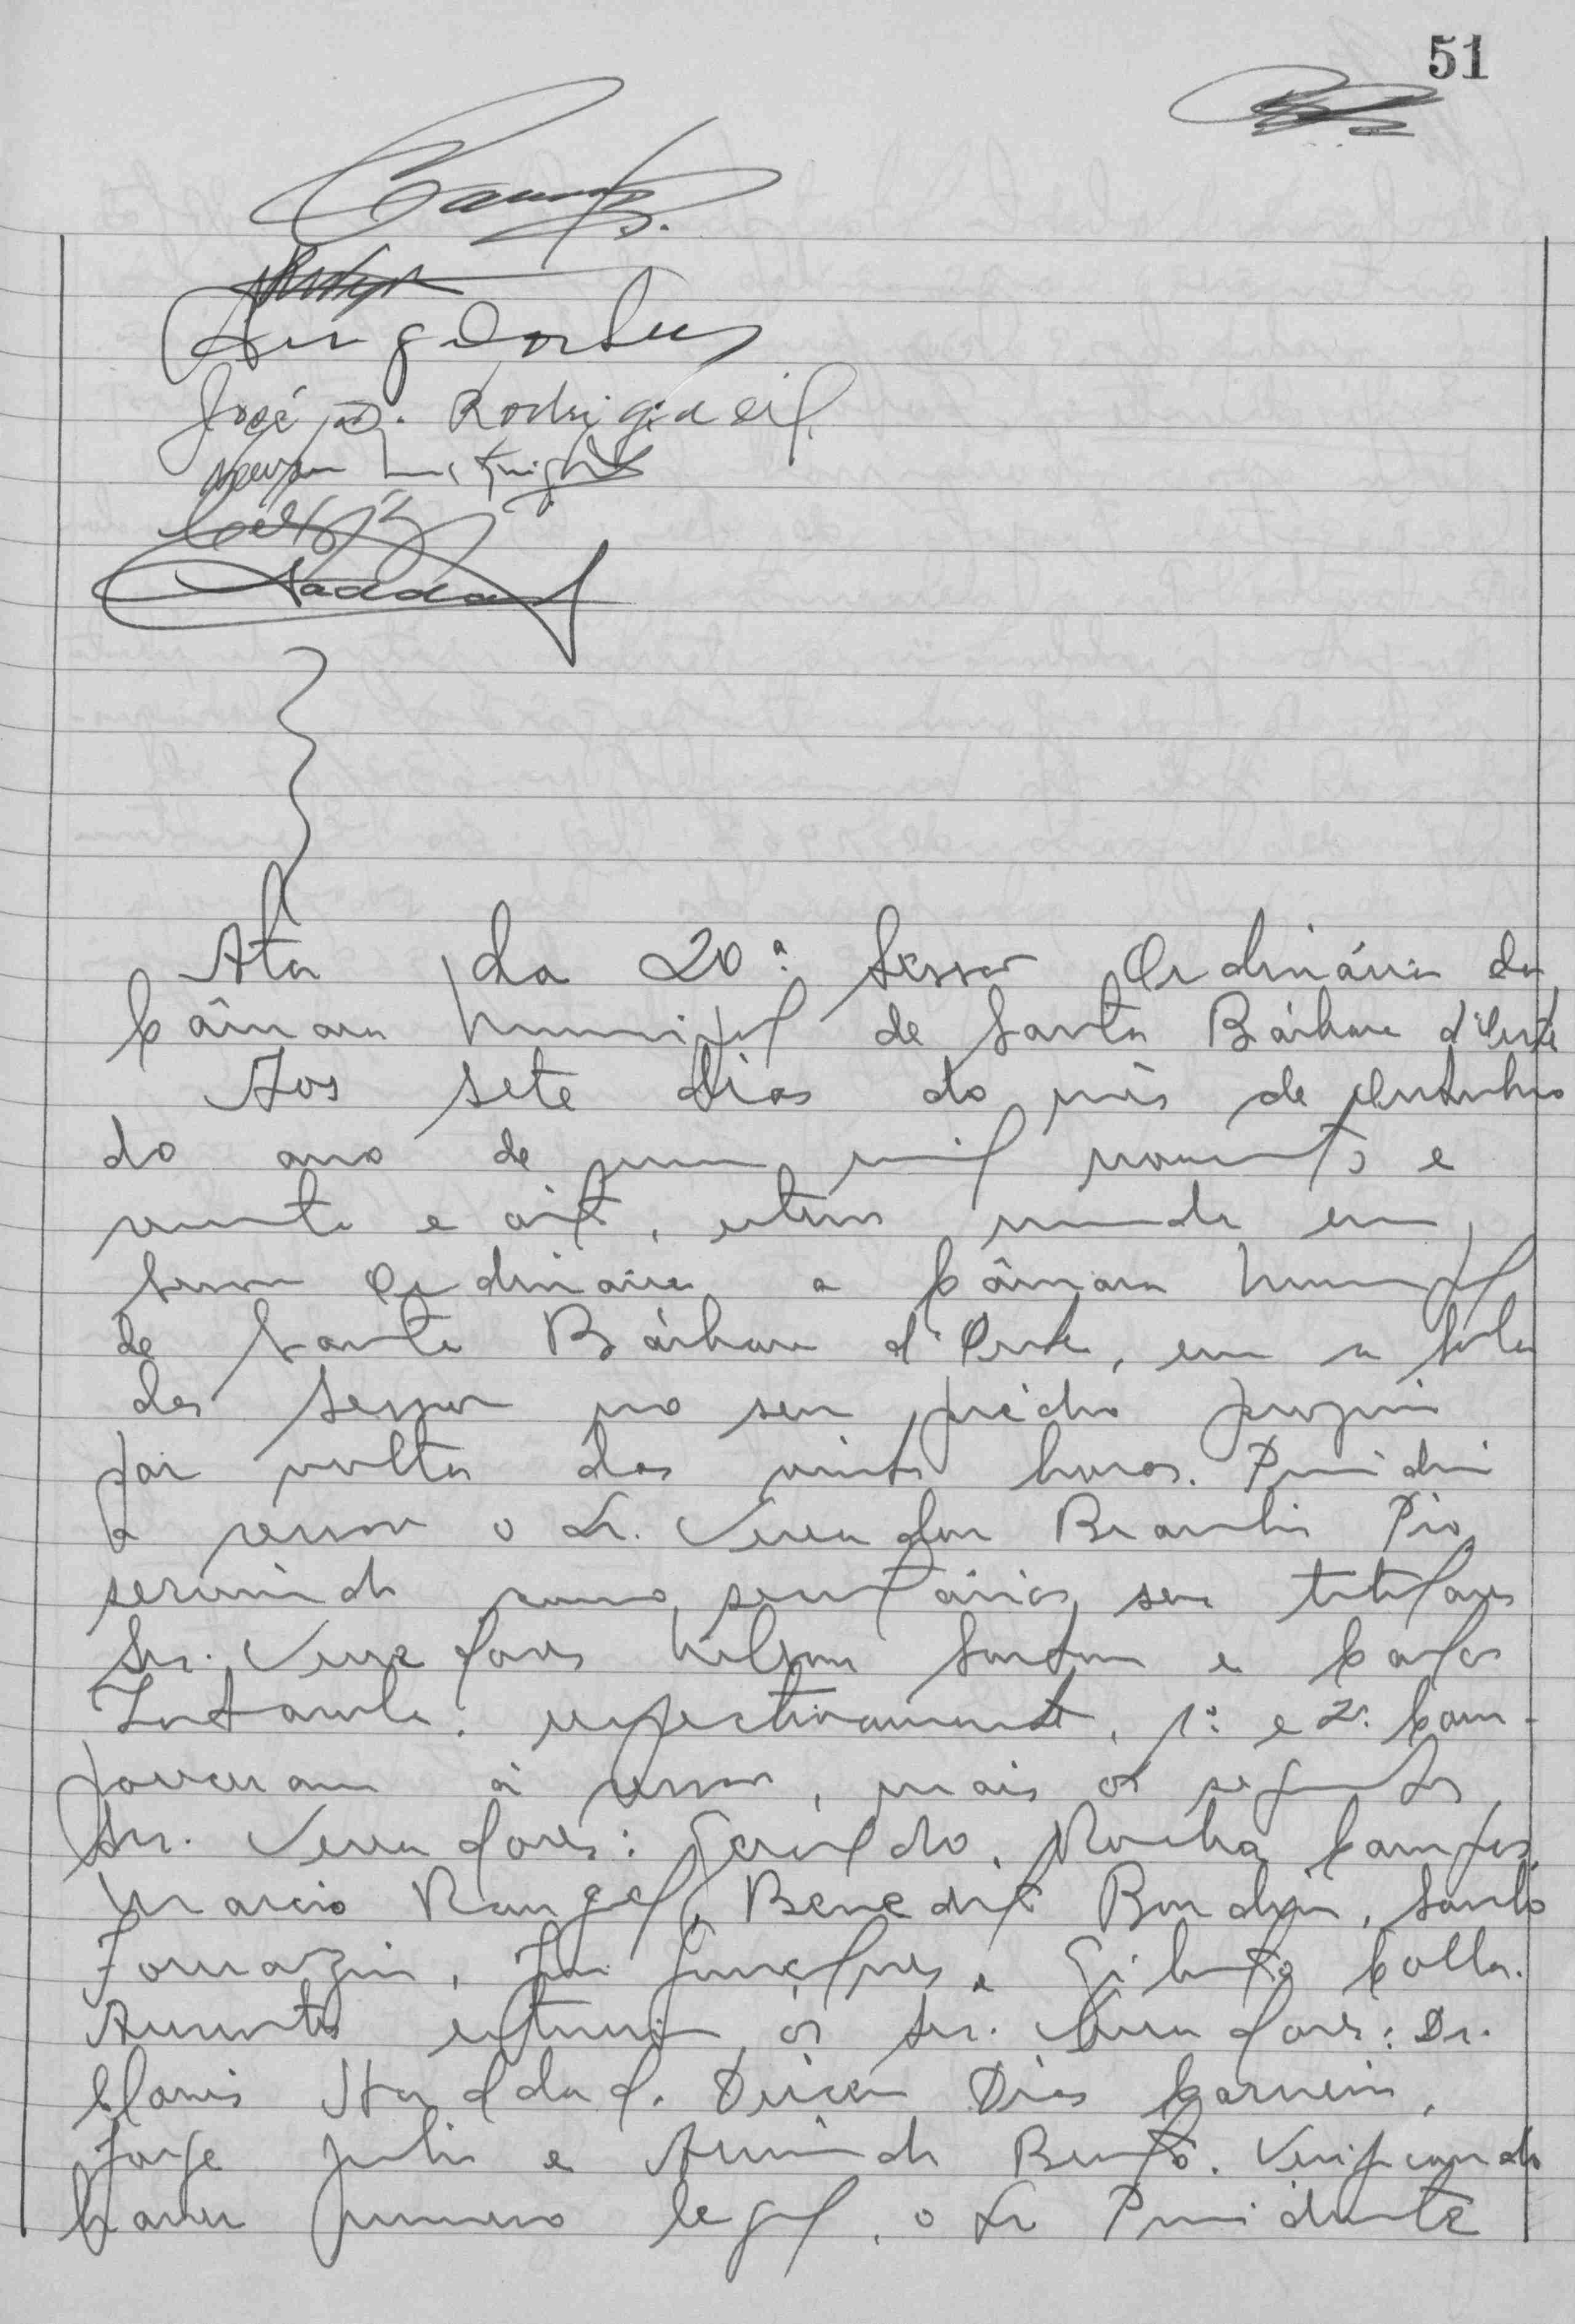 51
José D. Rodrigues
Haddad
Ata da 20ª Sessão Ordinária da
Câmara Municipal de Santa Bárbara d'Oeste
Aos sete dias do mês de Outubro
do ano de um mil novecentos e
e oito, esteve reunida em
Sessão Ordinária a Câmara Municipal
de Santa Bárbara d'Oeste, em a Sala
das Sessões no seu prédio próprio
por volta das vinte horas. Presidiu
a sessão o Sr. Vereador Braulio Pio,
servindo como secretários seus titulares
Srs. Vereadores Nilson Santon e Carlos
respectivamente, 1º e 2º. Com-
pareceram à sessão, mais os seguintes
Srs. Vereadores: Geraldo Rocha Campos,
Marcio Rangel, Benedito Bondin, Santo
Fornazin, Gonçalves e Gilberto Colla.
Ausentes estiveram os Srs. Vereadores: Dr.
Clovis Haddad, Dirceu Dias Carneiro,
Jorge Julio e Armindo Bento. Verificando
haver número legal, o Sr Presidente